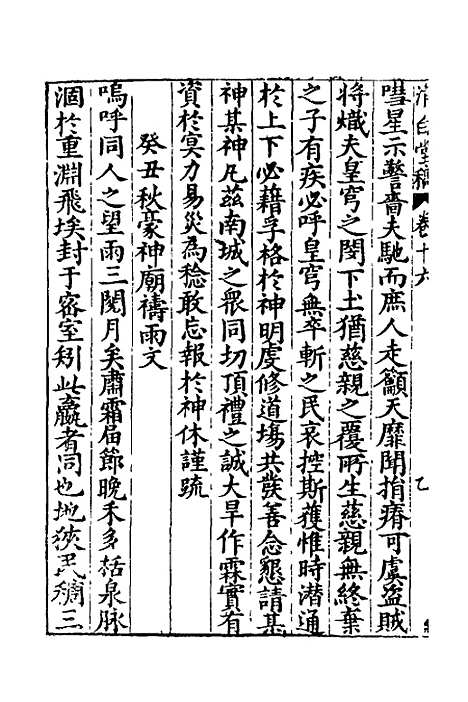 清白堂稿 卷十六
嘒星示警嗇夫馳而庶人走籲天靡聞捐瘠可虞盜賊
將熾夫皇穹之閔下土猶慈親之覆所生慈親無終棄
之子有疾必呼皇穹無卒斬之民哀控斯獲惟時潜通
於上下必藉孚格於神明虔修道塲共發善念懇請某
神某神凡茲南城之眾同切頂禮之誠大旱作霖實有
資於冥力易災為稔敢忘報於神休謹䟽
癸丑秋豪神廟禱雨文
嗚呼同人之望雨三閱月矣肅霜届節晚禾多枯泉脉
涸於重淵飛埃封于宻室矧此羸者同也地狹民稠三